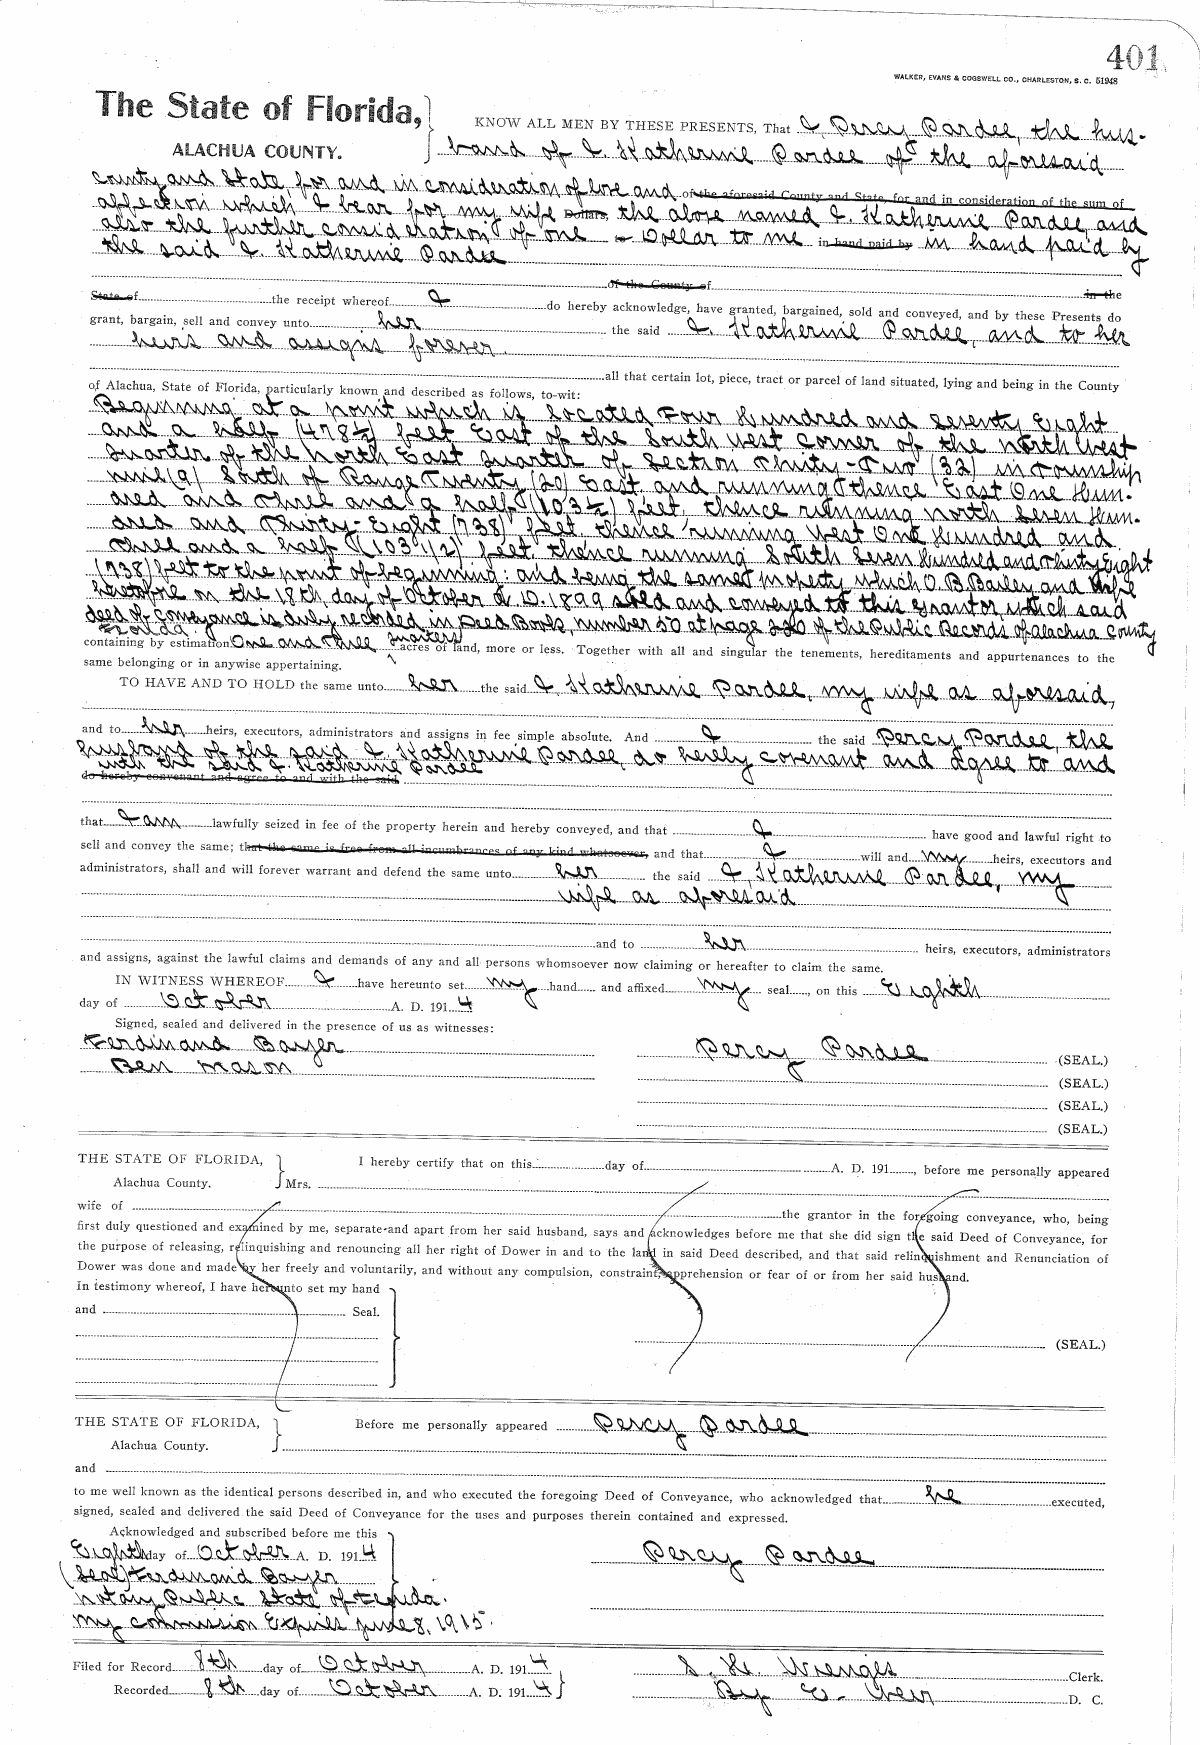 401
WALKER, EVANS & COGSWELL CO., CHARLESTON, S. C. 51948
The State of Florida,
ALACHUA COUNTY.
KNOW ALL MEN BY THESE PRESENTS, That I, Percy Pardee, the hus-
band of I. Katherine Pardee of the aforesaid
county and State, for and in consideration of love and of the aforesaid County and State, for and in consideration of the sum of
affection which I bear for my wife Dollars, the above named I. Katherine Pardee, and
also the further consideration of one – Dollar to me in hand paid by in hand paid by
the said I. Katherine Pardee
of the County of
State of the receipt whereof I do hereby acknowledge, have granted, bargained, sold and conveyed, and by these Presents do in the
grant, bargain, sell and convey unto her the said I. Katherine Pardee, and to her
heirs and assigns forever.
all that certain lot, piece, tract or parcel of land situated, lying and being in the County
of Alachua, State of Florida, particularly known and described as follows, to-wit:
Beginning at a point which is located Four Hundred and seventy Eight
and a half (478½) feet East of the South west corner of the north West
quarter of the north East quarter of Section Thirty-Two (32) in Township
nine (9) South of Range Twenty (20) East, and running thence East One Hun-
dred and Three and a half (103½) feet, thence running north Seven Hun-
dred and Thirty-Eight (738) feet, thence running west One Hundred and
Three and a half (103 1/2) feet, thence running South Seven Hundred and Thirty Eight
(738) feet to the point of beginning: and being the same property which O. B. Bailey and Wife
heretofore on the 18th day of October A. D. 1899 sold and conveyed to this grantor, which said
deed of conveyance is duly recorded in Deed Book, number 50 at page 220 of the Public Records of Alachua County
Florida.
containing by estimation One and Three quarters acres of land, more or less. Together with all and singular the tenements, hereditaments and appurtenances to the
same belonging or in anywise appertaining.
TO HAVE AND TO HOLD the same unto her the said I. Katherine Pardee, my wife as aforesaid,
and to her heirs, executors, administrators and assigns in fee simple absolute. And I the said Percy Pardee, the
husband of the said I. Katherine Pardee, do hereby covenant and agree to and
with the said I. Katherine Pardee
do hereby convenant and agree to and with the said
that I am lawfully seized in fee of the property herein and hereby conveyed, and that I have good and lawful right to
sell and convey the same; that the same is free from all incumbrances of any kind whatsoever, and that I will and my heirs, executors and
administrators, shall and will forever warrant and defend the same unto her the said I. Katherine Pardee, my
wife as aforesaid
and to her heirs, executors, administrators
and assigns, against the lawful claims and demands of any and all persons whomsoever now claiming or hereafter to claim the same.
IN WITNESS WHEREOF I have hereunto set my hand and affixed my seal, on this Eighth
day of October A. D. 1914
Signed, sealed and delivered in the presence of us as witnesses:
Ferdinand Bayer Percy Pardee (SEAL.)
Ben Mason (SEAL.)
(SEAL.)
(SEAL.)
THE STATE OF FLORIDA, I hereby certify that on this day of A. D. 191, before me personally appeared
Alachua County. Mrs.
wife of the grantor in the foregoing conveyance, who, being
first duly questioned and examined by me, separate-and apart from her said husband, says and acknowledges before me that she did sign the said Deed of Conveyance, for
the purpose of releasing, relinquishing and renouncing all her right of Dower in and to the land in said Deed described, and that said relinquishment and Renunciation of
Dower was done and made by her freely and voluntarily, and without any compulsion, constraint, apprehension or fear of or from her said husband.
In testimony whereof, I have hereunto set my hand
and Seal.
(SEAL.)
THE STATE OF FLORIDA, Before me personally appeared Percy Pardee
Alachua County.
and
to me well known as the identical persons described in, and who executed the foregoing Deed of Conveyance, who acknowledged that he executed,
signed, sealed and delivered the said Deed of Conveyance for the uses and purposes therein contained and expressed.
Acknowledged and subscribed before me this
Eighth day of October A. D. 1914 Percy Pardee
(Seal) Ferdinand Bayer
Notary Public State of Florida.
My commission Expires June 8, 1915.
Filed for Record 8th day of October A. D. 1914 S. H. Wienges Clerk.
Recorded 8th day of October A. D. 1914 By E. Weir D. C.